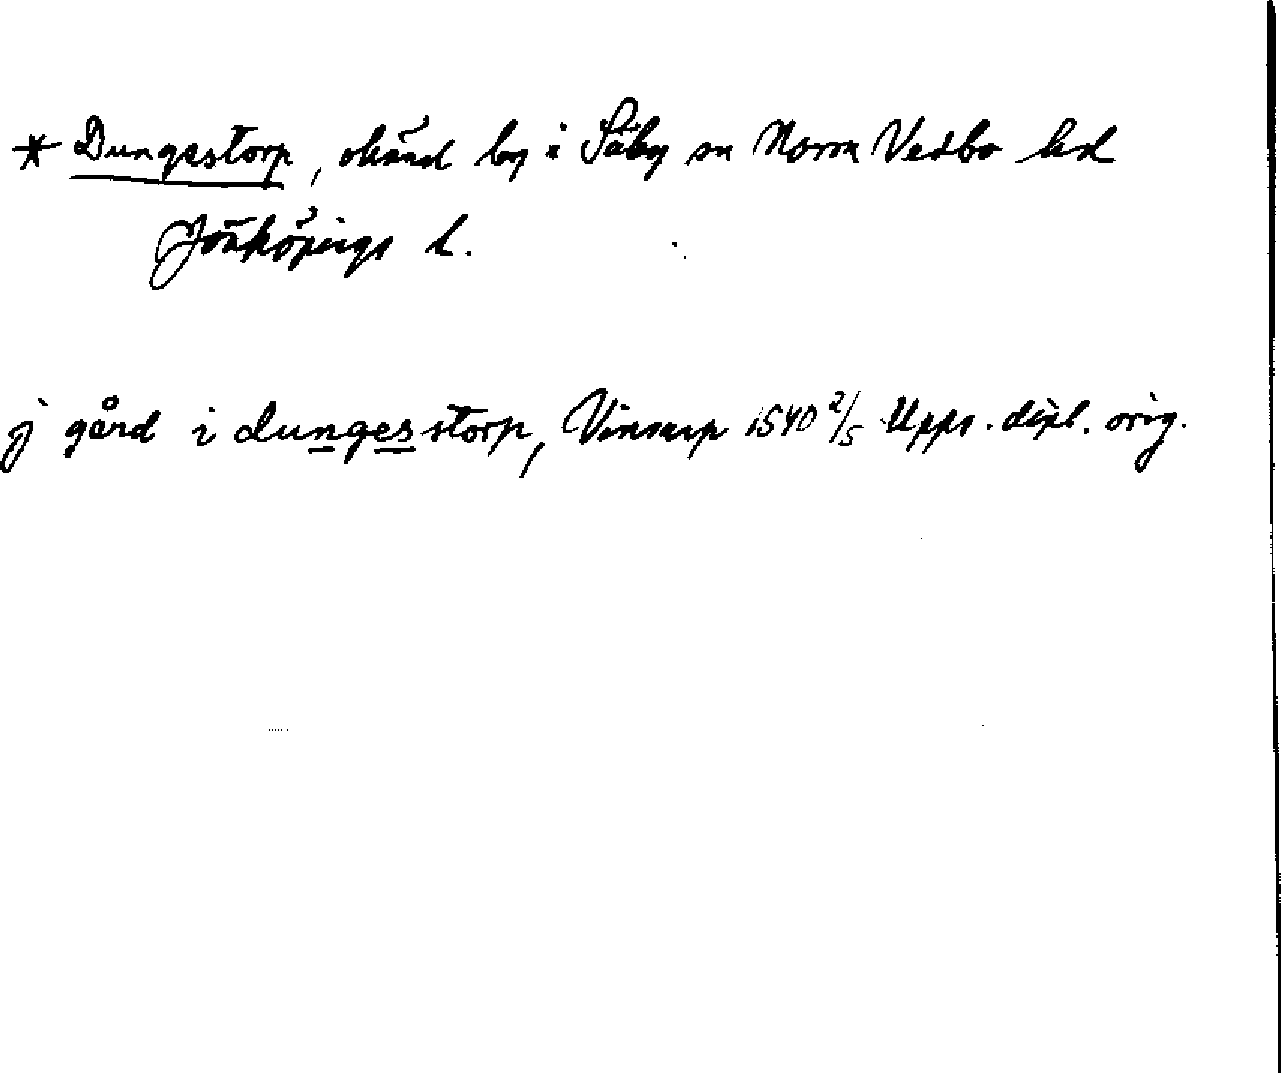 * Dungsstorp, okänd by i Säby sn Norra Vedbo hd
Jönköpings l.
j gård i dungesstorp, Vinsarp 1540 2/5 Upps. dipl. orig.